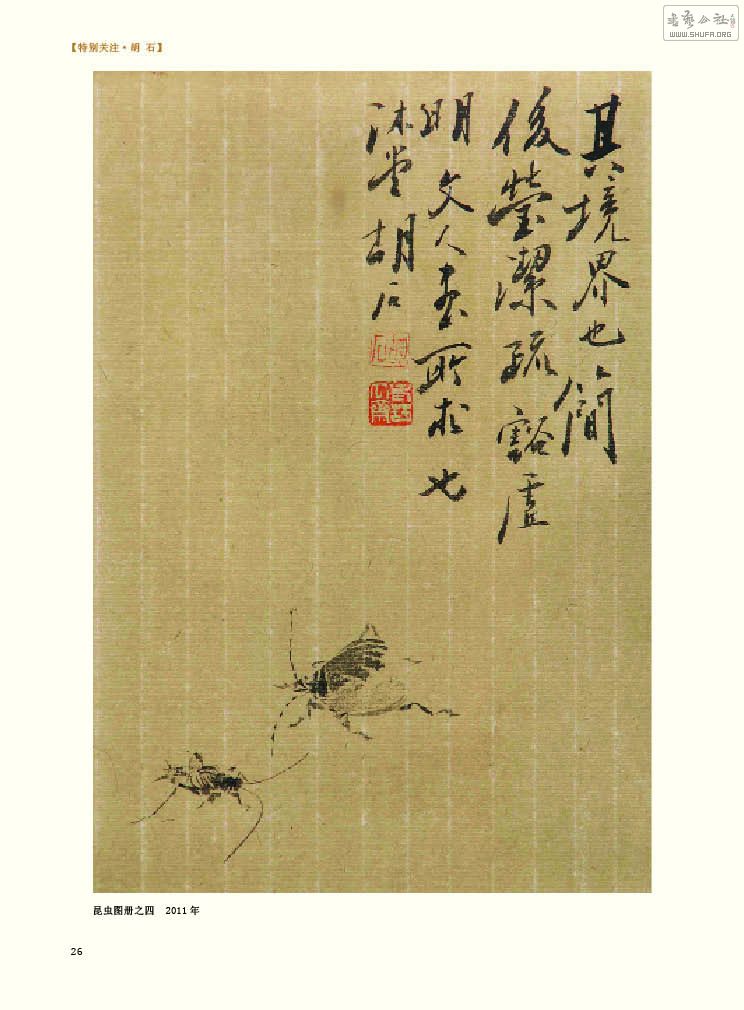 【特别关注·胡 石】
書法公社
WWW.SHUFA.ORG
其境界也簡
後瑩潔疏豁虛
明文人畫所求也
沐堂胡石
昆虫图册之四 2011年
26